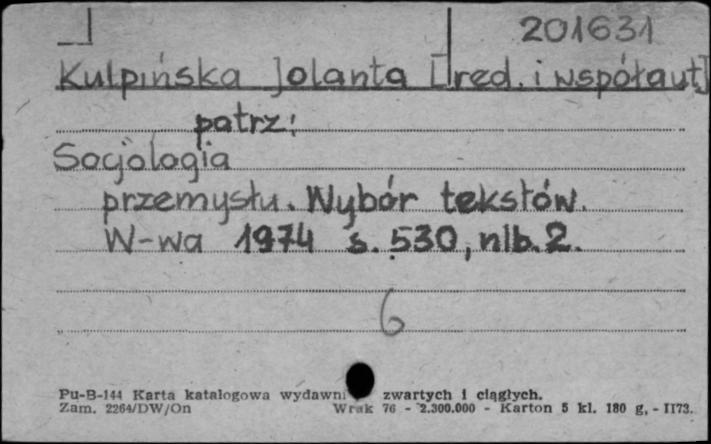 201631
Kulpińska Jolanta [red. i współaut]
patrz:
Socjologia
przemysłu. Wybór tekstów.
W-wa 1974 s. 530, nlb. 2.
6
Pu-B-144 Karta katalogowa wydawni zwartych i ciągłych.
Zam. 2264/DW/On Wrak 76 - 2.300.000 - Karton 5 kl. 180 g, - II73.